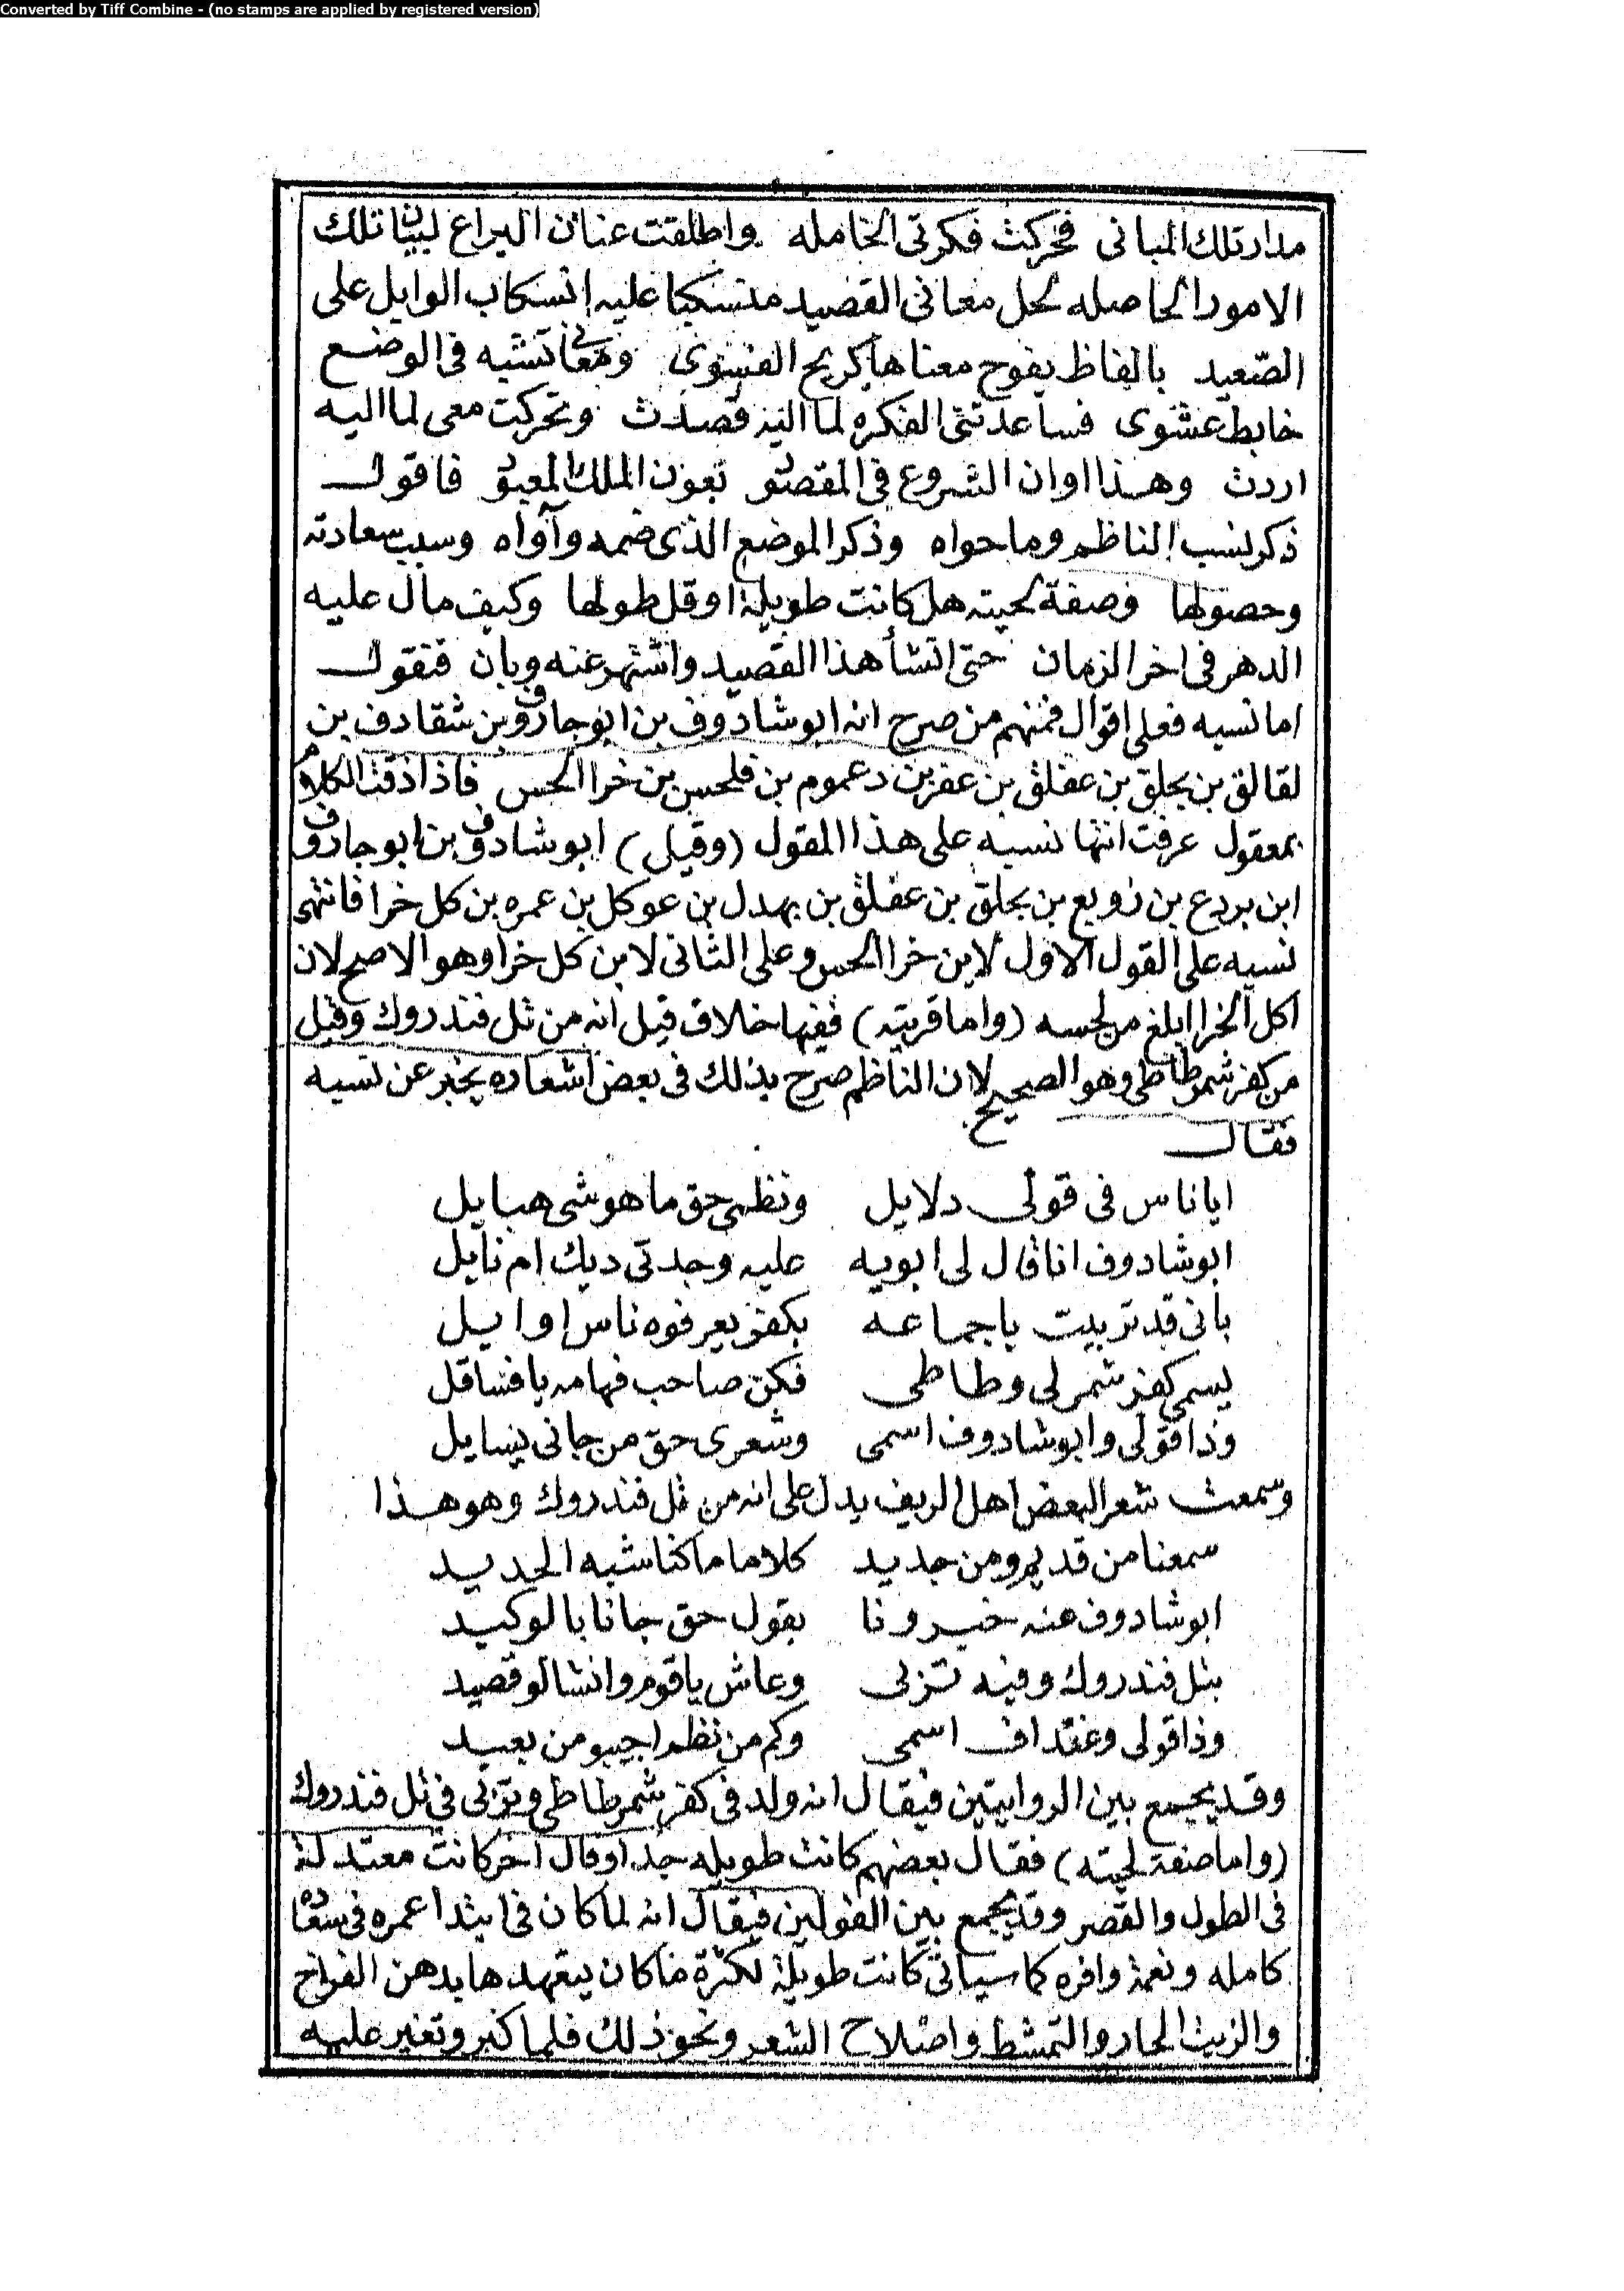 Converted by Tiff Combine - (no stamps are applied by registered version)
مدار تلك المبانى فحركت فكرتى الخامله واطلقت عنان اليراع لبيان تلك
الامور الحاصله لحل معانى القصيد منسكبا عليه انسكاب الوابل على
الصّعيد بالفاظ يفوح معناها كريح الفسوى ومعانى تشبه فى الوضع
خابط عشوى فساعدتنى الفكره لما اليه قصدت وتحركت معى لما اليه
اردت وهذا اوان الشروع فى المقصود بعون الملك المعبود فاقول
ذكر نسب الناظم وما حواه وذكر الموضع الذى ضمه وآواه وسبب سعادته
وحصولها وصفة لحيته هل كانت طويلة او قل طولها وكيف مال عليه
الدهر فى اخر الزمان حتى انشأ هذا القصيد واشتهر عنه وبان فنقول
اما نسبه فعلى اقوال فمنهم من صرح انه ابو شادوف بن ابو جاروف بن شقادف بن
لقالق بن بجلق بن عفلق بن عفر بن دعموم بن فلحس بن خرا الحس فاذا ذقت الكلام
بمعقول عرفت انتها نسبه على هذا المقول (وقيل) ابو شادوف بن ابو جاروف
ابن بردع بن زوبع بن بجلق بن عفلق بن بهدل بن عوكل بن عمره بن كل خرا فانتهى
نسبه على القول الاول لابن خرا الحس وعلى الثانى لابن كل خرا وهو الاصح لان
اكل الخرا ابلغ من لحسه (واما قريته) ففيها خلاف قيل انه من تل فندروك وقيل
من كفر شمرطاطى وهو الصحيح لان الناظم صرح بذلك فى بعض اشعاره يخبر عن نسبه
فقال
ايا ناس فى قولى دلايل ونظمى حق ما هو شى هبايل
ابو شادوف انا قال لى ابويه عليه وجدتى ديك ام نايل
بانى قد تربيت يا جماعه بكفر يعرفوه ناس اوايل
يسمى كفر شمر لى وطاطى فكن صاحب فهامه يا فسا قل
وذا قولى وابو شادوف اسمى وشعرى حق من جانى يسايل
وسمعت شعرا لبعض اهل الريف يدل على انه من تل فندروك وهو هذا
سمعنا من قديم ومن جديد كلاما ما كنا شبه الحديد
ابو شادوف عنه خبرونا بقول حق جانا بالوكيد
بتل فندروك وفيه تربى وعاش يا قوم وانشا لو قصيد
وذا قولى وعنقداف اسمى وكم من نظم اجيبو من بعيد
وقد يجمع بين الروايتين فيقال انه ولد فى كفر شمرطاطى وتربى فى تل فندروك
(واما صفة لحيته) فقال بعضهم كانت طويله جدا وقال اخر كانت معتدلة
فى الطول والقصر وقد يجمع بين القولين فيقال انه لما كان فى ابتدا عمره فى سعاده
كامله ونعمة وافره كما سياتى كانت طويلة لكثرة ما كان يتعهدها بدهن الفراخ
والزيت الحار والتمشط واصلاح الشعر ونحو ذلك فلما كبر وتغير عليه